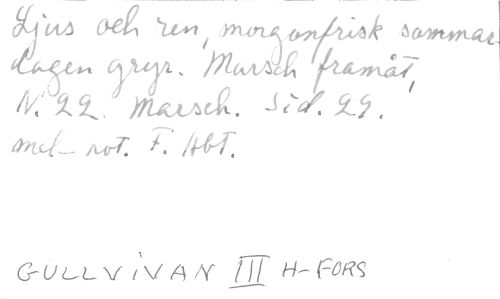 Ljus och ren, morgonfrisk sommar-
dagen gryr. Marsch framåt,
N. 22. Marsch. Sid. 29.
mel- not. F. Hbt.
GULLVIVAN III H-FORS